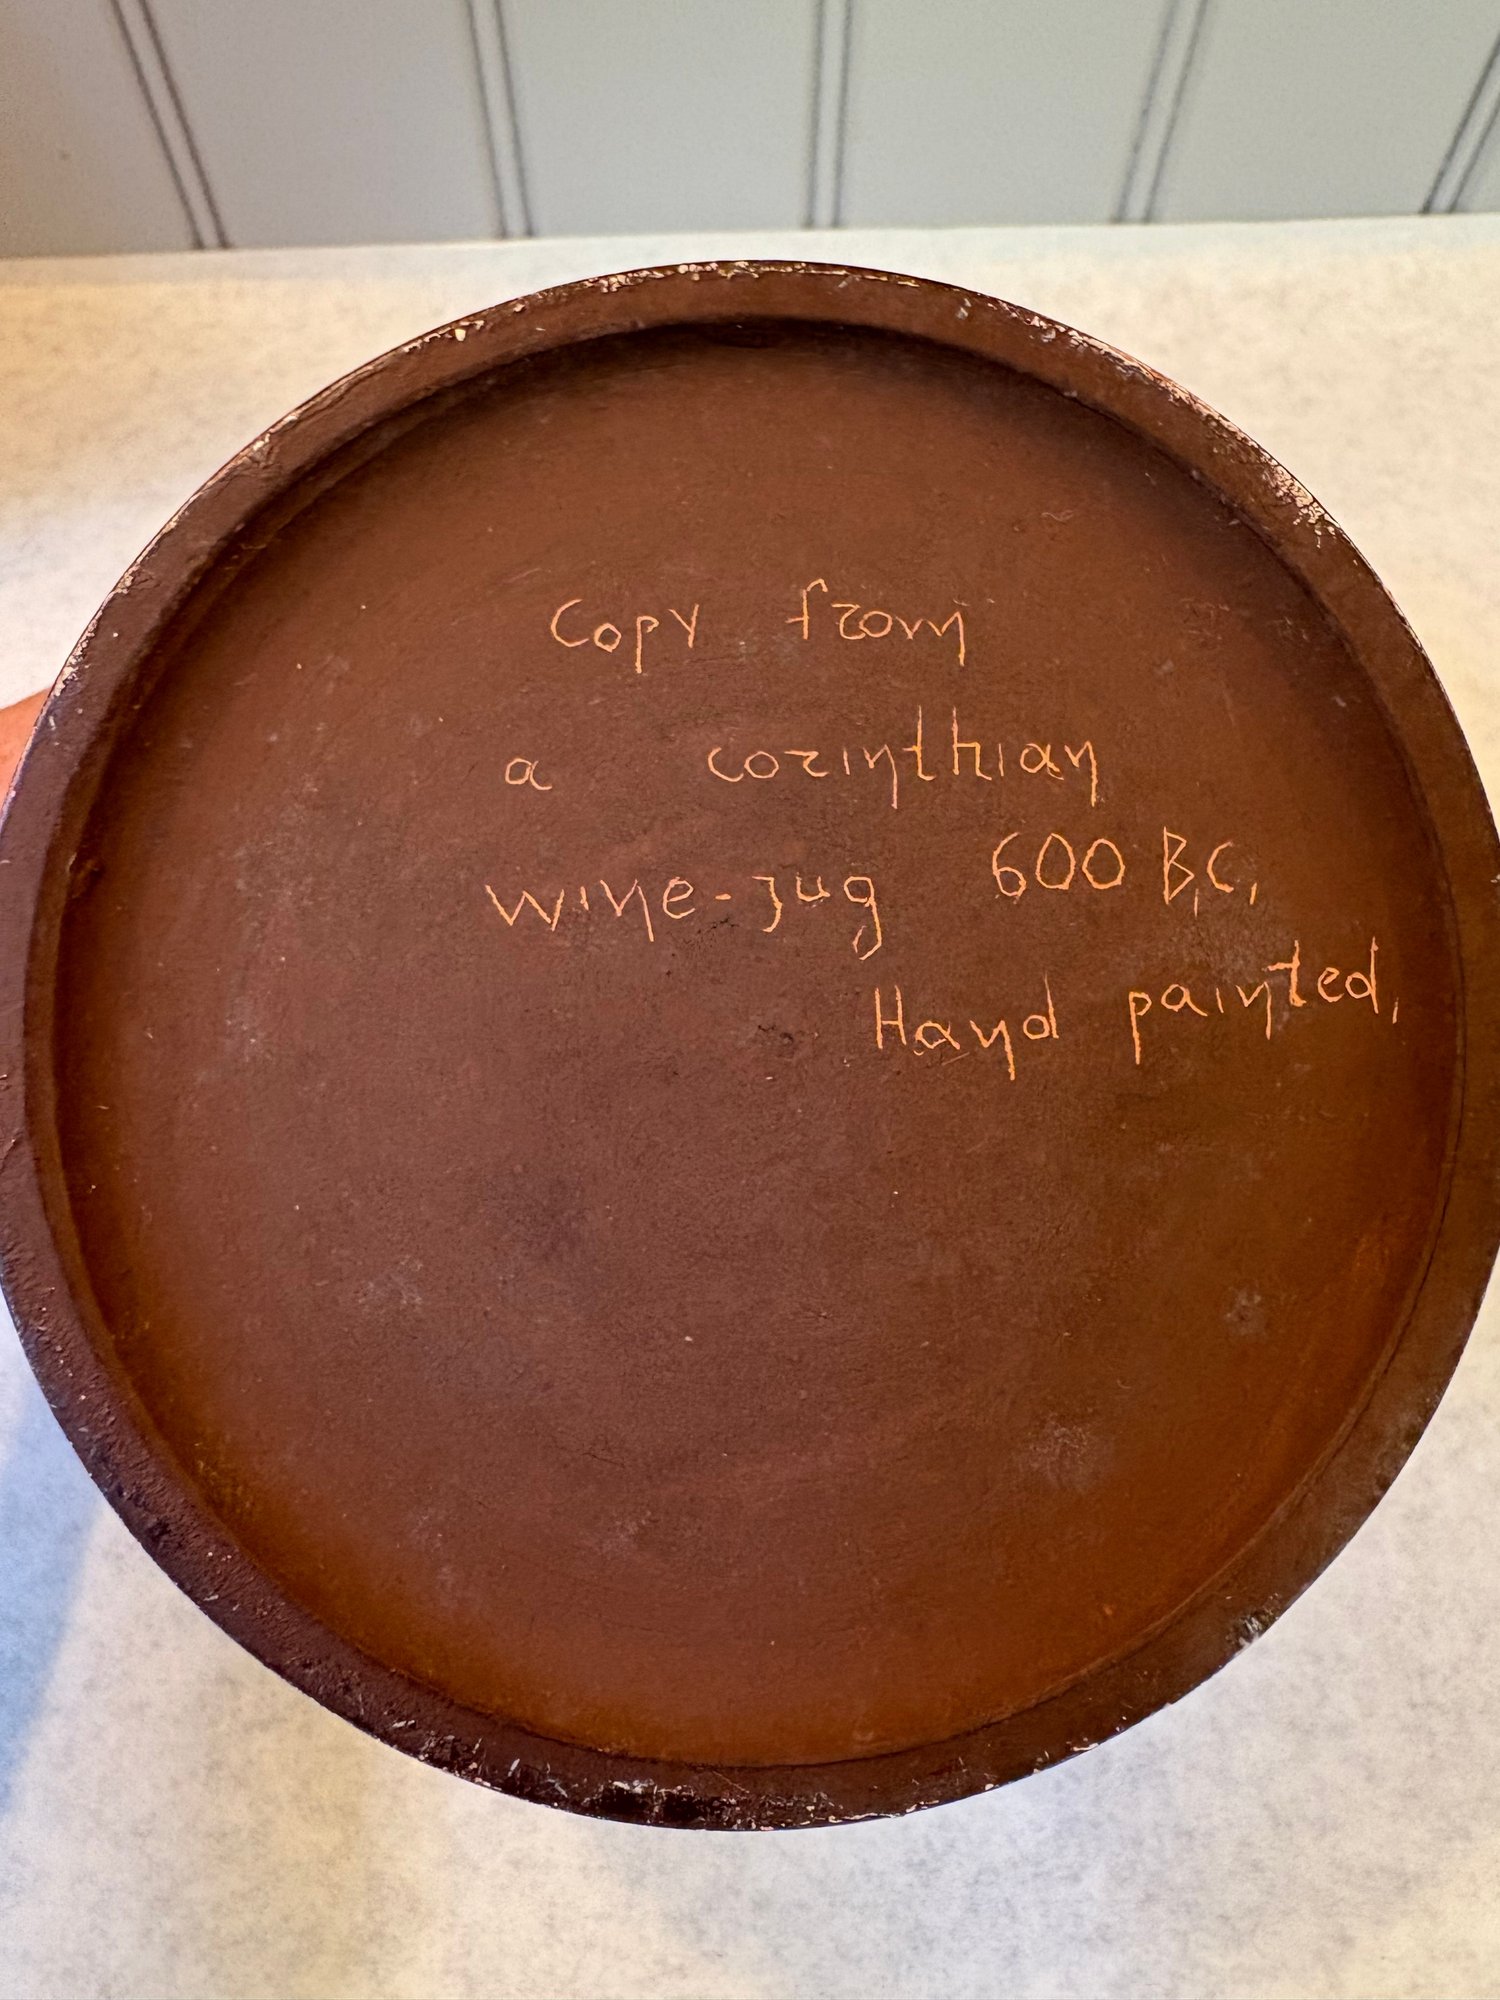 Copy from
a corinthian
wine-jug 600 B.C.
Hand painted.